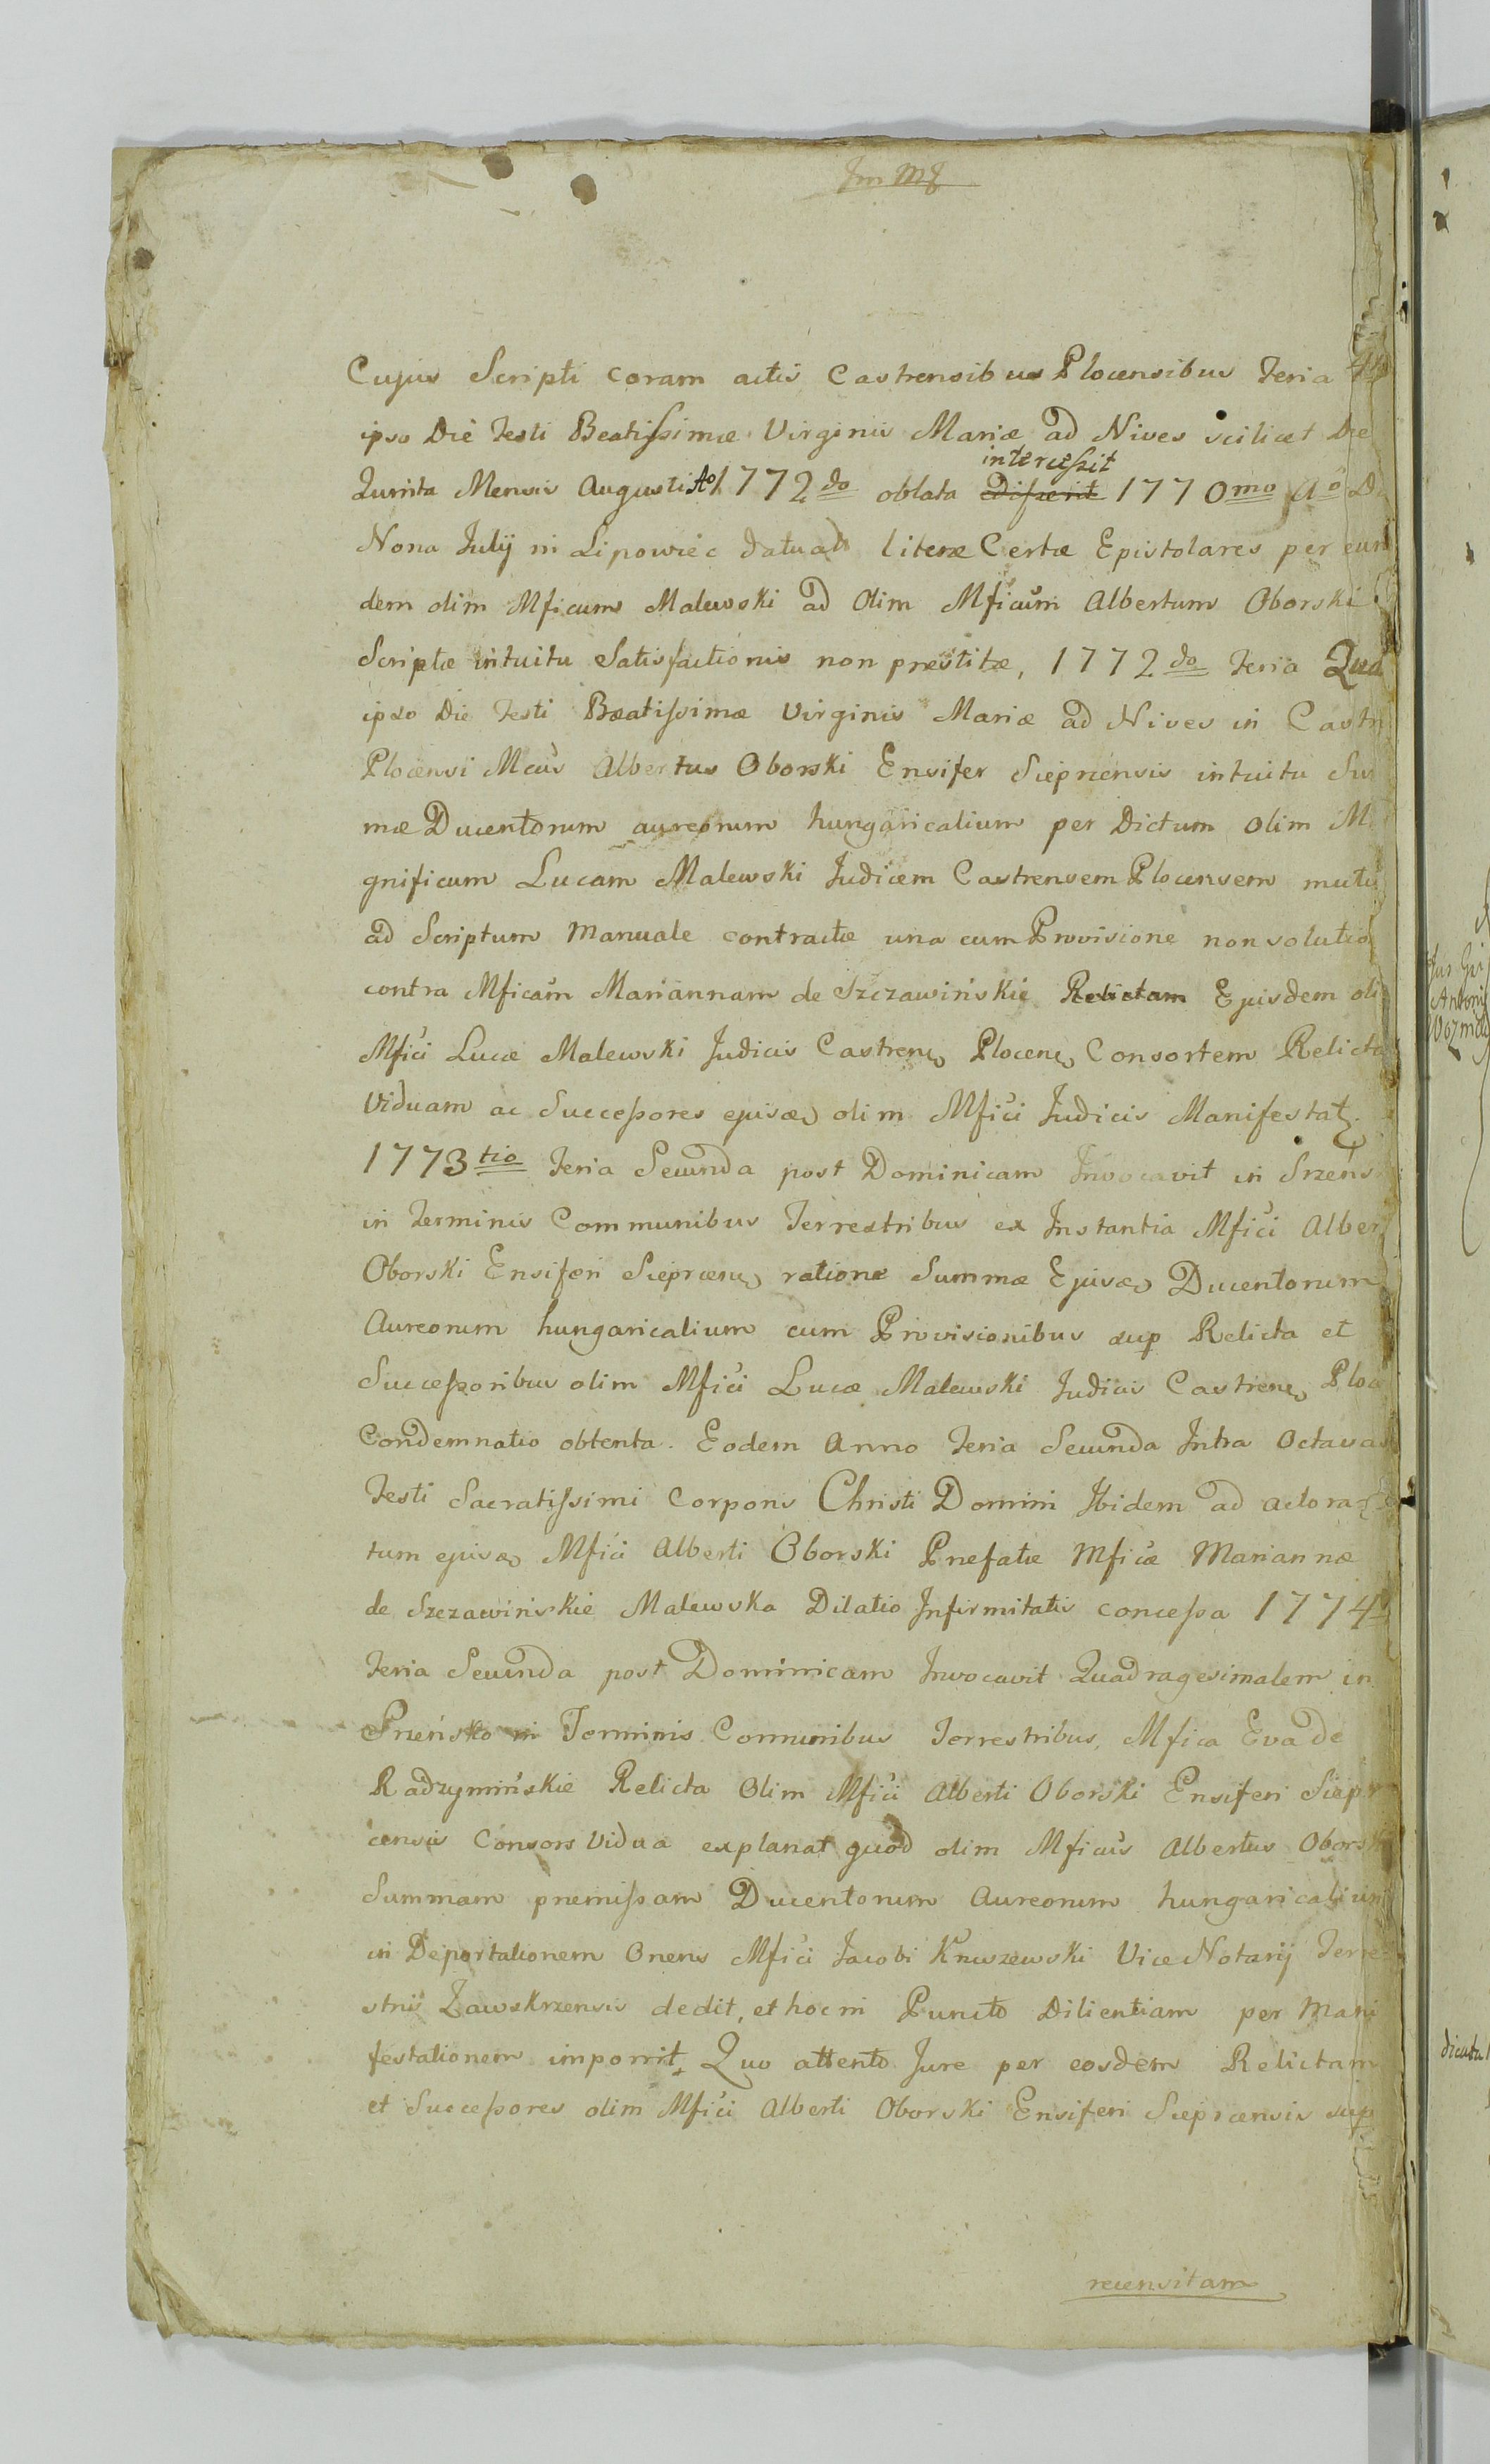 Cujus Scripti coram actis Castrensibus Plocensibus Feria
ipso Die Festi Beatissimæ Virginis Mariæ ad Nives scilicet Die
Quinta Mensis Augusti Ao 1772do oblata intercessit 1770mo Ao D
Nona Julij in Lipowiec datæ literæ Certæ Epistolares per eun
dem olim Mficum Malewski ad Olim Mficum Albertum Oborski
Scriptæ intuitu Satisfactionis non prestitæ, 1772do Feria Qua
ipso Die Festi Bæatissimæ Virginis Mariæ ad Nives in Castr
Plocensi Mcus Albertus Oborski Ensifer Sieprcensis intuitu Su
mæ Ducentorum aureorum hungaricalium per Dictum olim M
gnificum Lucam Malewski Judicem Castrensem Plocensem mutu
ad Scriptum Manuale contractæ una cum Provisione non solutio
contra Mficam Mariannam de Szczawińskie Relictam Ejusdem oli
Mfici Lucæ Malewski Judicis Castrens Plocens Consortem Relicta
Viduam ac Successores ejusd olim Mfici Judicis Manifestat
1773tio Feria Secunda post Dominicam Invocavit in Srzens
in Terminis Communibus Terrestribus ex Instantia Mfici Alber
Oborski Ensiferi Sieprcens ratione Summæ Ejusd Ducentorum
Aureorum hungaricalium cum Provisionibus sup Relicta et
Successoribus olim Mfici Lucæ Malewski Judicis Castrens Ploc
Condemnatio obtenta. Eodem Anno Feria Secunda Intra Octavas
Festi Sacratissimi Corporis Christi Domini Ibidem ad actora-
tum ejusd Mfici Alberti Oborski Prefatæ Mficæ Mariannæ
de Szczawińskie Malewska Dilatio Infirmitatis concessa 1774
Feria Secunda post Dominicam Invocavit Quadragesimalem in
Srzeńsko in Terminis Communibus Terrestribus, Mfica Eva de
Radzymińskie Relicta Olim Mfici Alberti Oborski Ensiferi Siepr
censis Consors Vidua explanat quod olim Mficus Albertus Oborsk
Summam premissam Ducentorum Aureorum hungaricalium
in Deportationem Oneris Mfici Jacobi Kruszewski Vice Notarij Terre
stris Zawskrzensis dedit, et hoc in Puncto Dilientiam per Mani
festationem imponit. Quo attento Jure per eosdem Relictam
et Successores olim Mfici Alberti Oborski Ensiferi Sieprcensis sup
recensitam